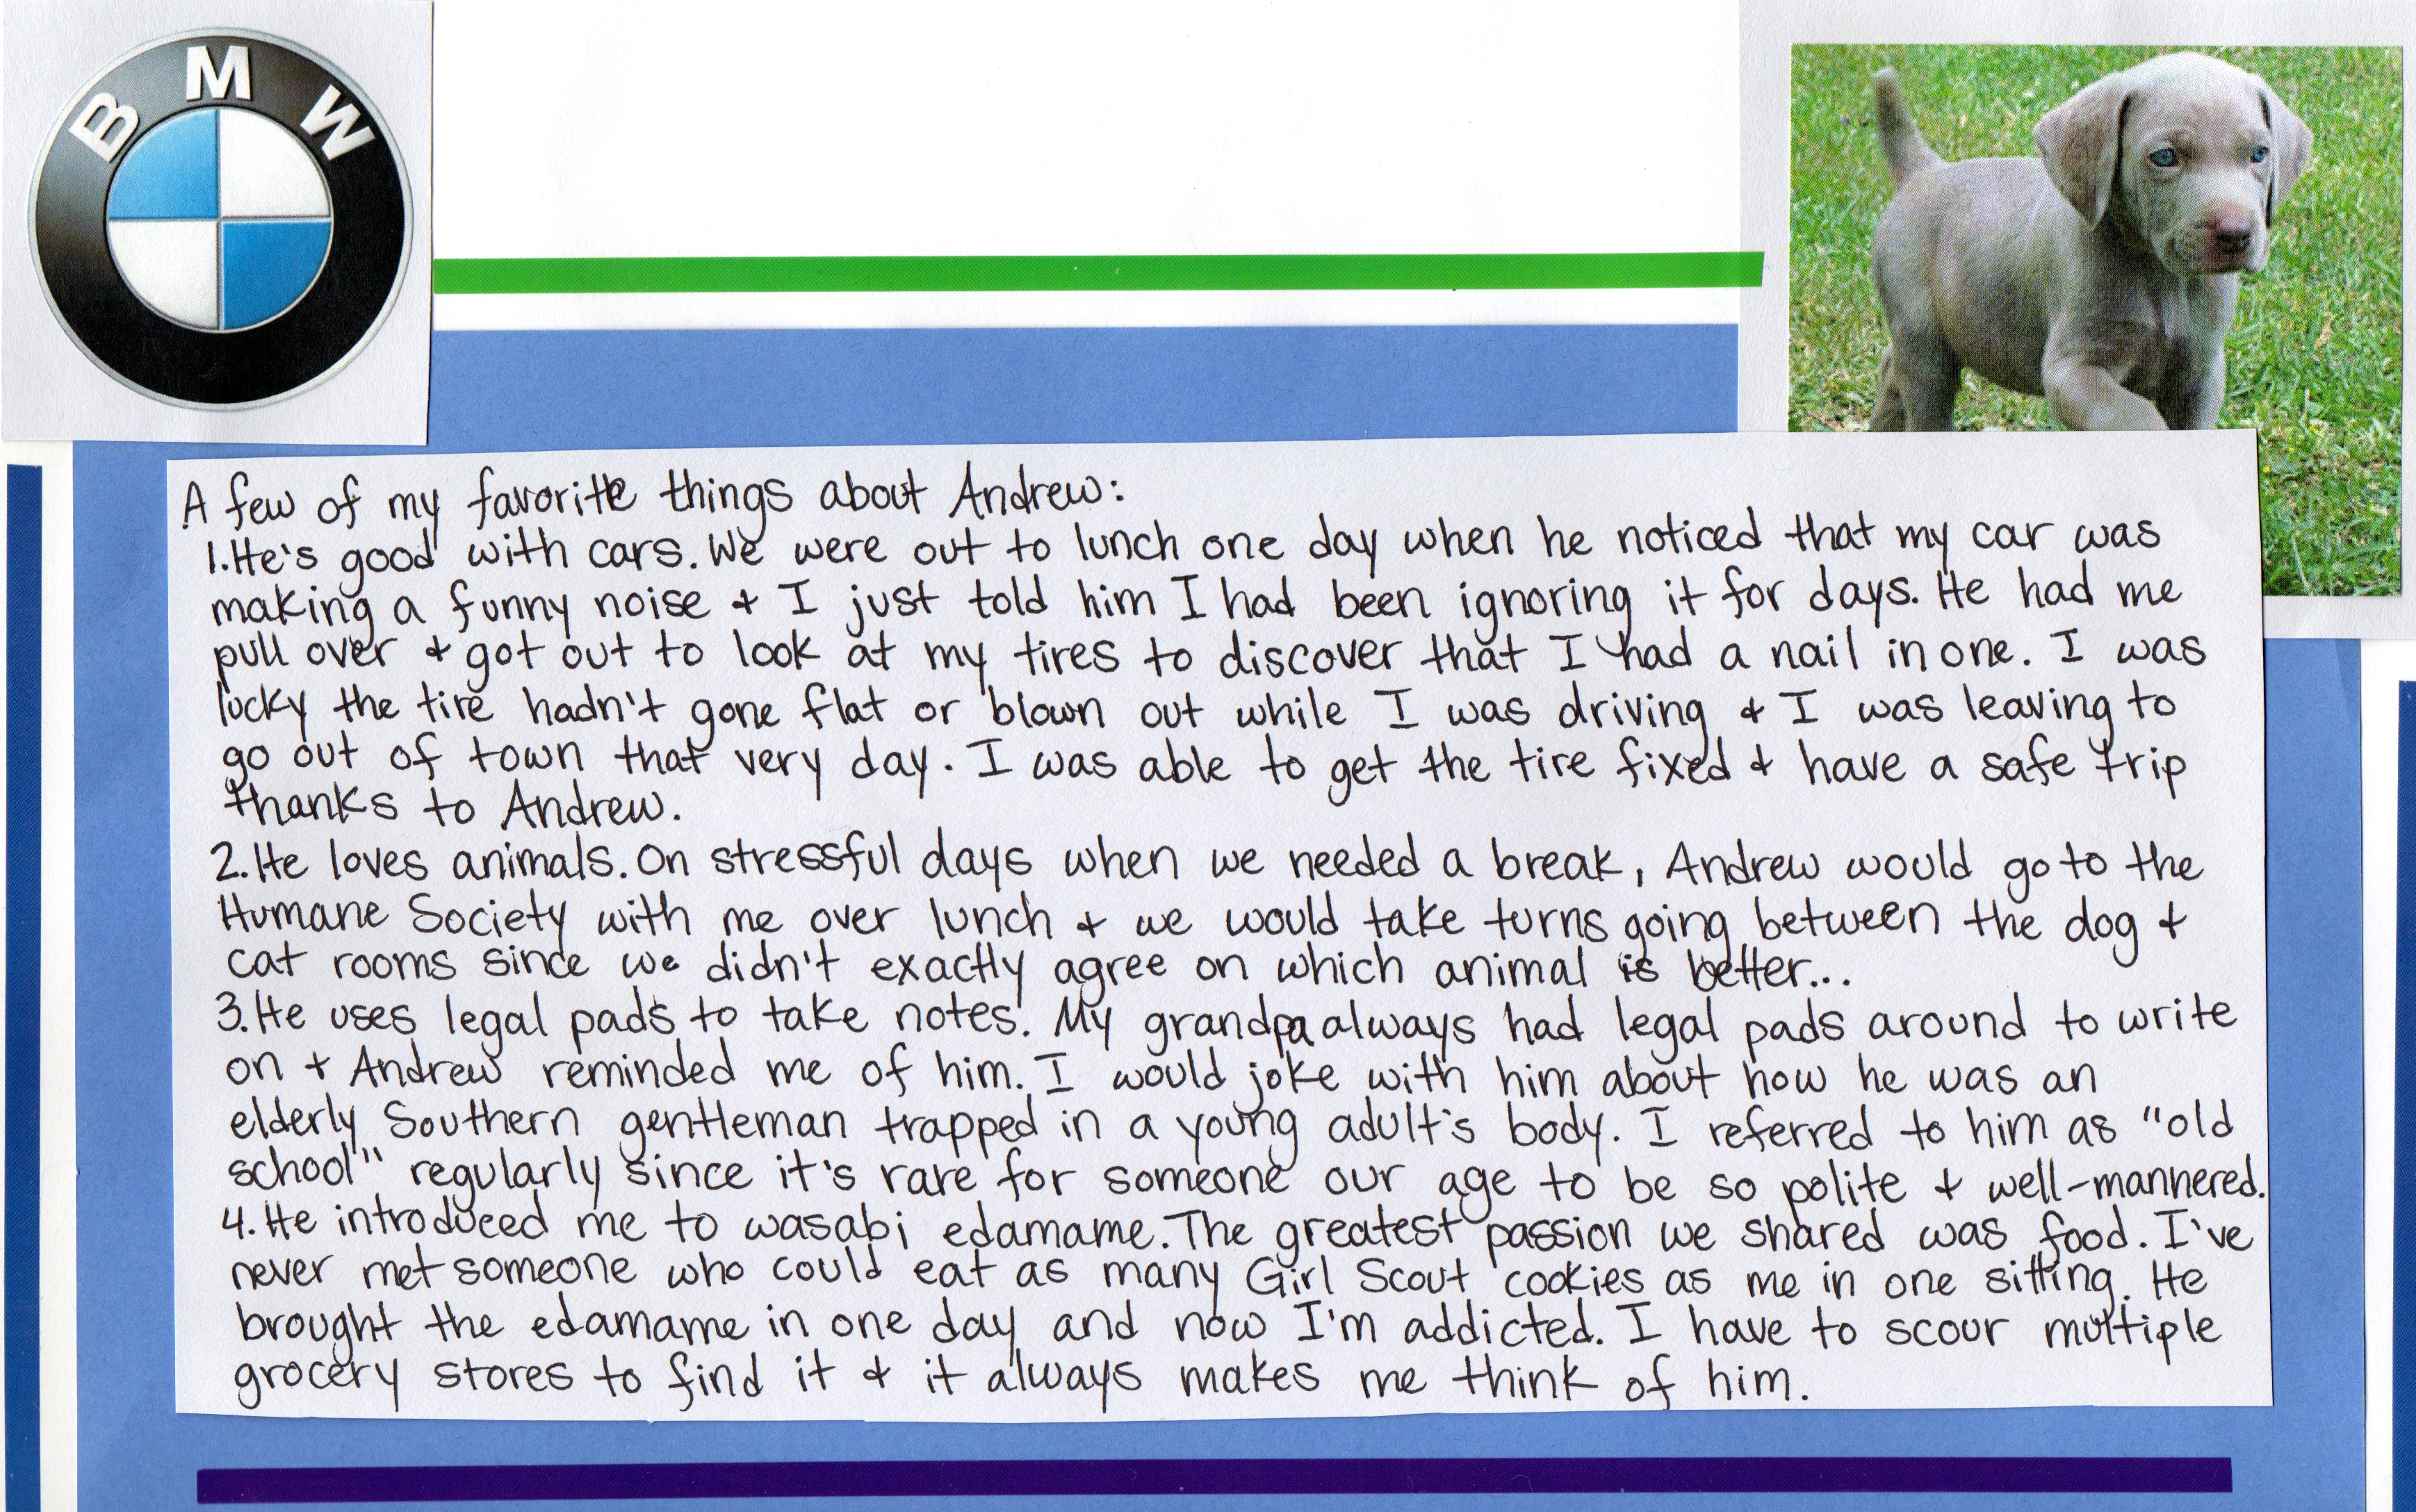 B M W
A few of my favorite things about Andrew:
1. He's good with cars. We were out to lunch one day when he noticed that my car was
making a funny noise & I just told him I had been ignoring it for days. He had me
pull over & got out to look at my tires to discover that I had a nail in one. I was
lucky the tire hadn't gone flat or blown out while I was driving & I was leaving to
go out of town that very day. I was able to get the tire fixed & have a safe trip
thanks to Andrew.
2. He loves animals. On stressful days when we needed a break, Andrew would go to the
Humane Society with me over lunch & we would take turns going between the dog &
cat rooms since we didn't exactly agree on which animal is better...
3. He uses legal pads to take notes. My grandpa always had legal pads around to write
on & Andrew reminded me of him. I would joke with him about how he was an
elderly Southern gentleman trapped in a young adult's body. I referred to him as "old
school" regularly since it's rare for someone our age to be so polite & well-mannered.
4. He introduced me to wasabi edamame. The greatest passion we shared was food. I've
never met someone who could eat as many Girl Scout cookies as me in one sitting. He
brought the edamame in one day and now I'm addicted. I have to scour multiple
grocery stores to find it & it always makes me think of him.